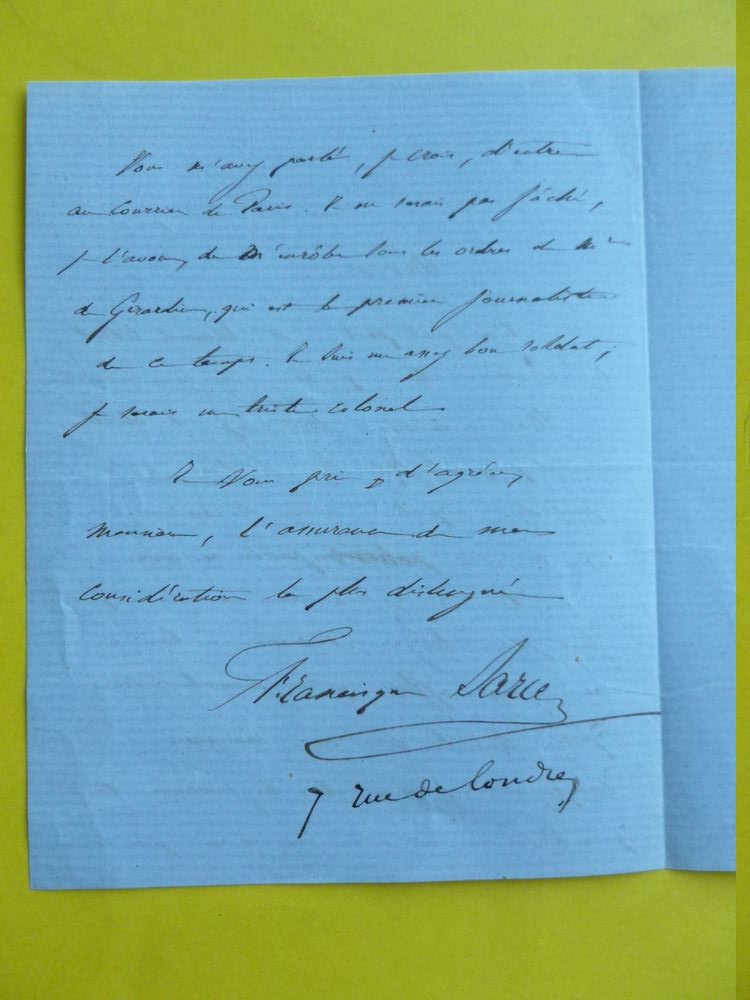 Vous m'avez parlé, je crois, d'entrer
au Courrier de Paris. Je ne serais pas fâché,
je l'avoue, de m'enrôler sous les ordres de Mr
de Girardin, qui est le premier journaliste
de ce temps. Je suis un assez bon soldat;
je serais un triste colonel
Je vous prie d'agréer,
Monsieur, l'assurance de ma
considération la plus distinguée
Francisque Sarcey
7 rue de Londres